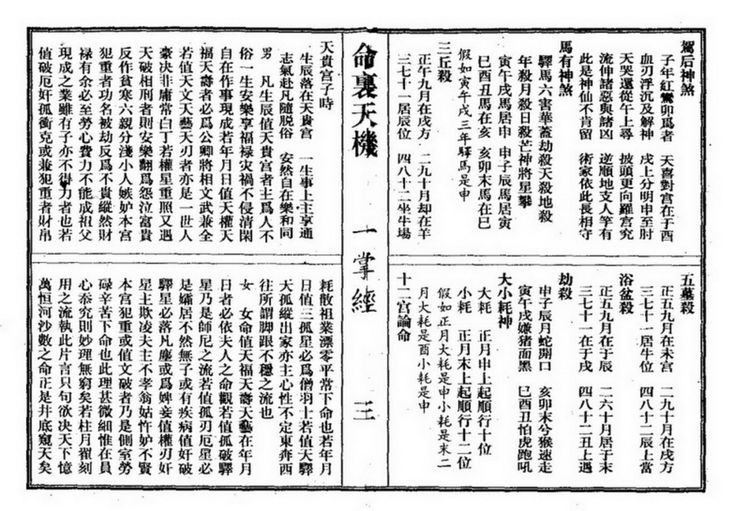 駕后神煞
子年紅鸞卯爲者 天喜對宮在于酉
血刃浮沉及解神 戌上分明申至肘
天哭還從午上尋 披頭更向羅宮究
流伸諸惡與諸凶 逆順地支人等有
此是神仙不肯留 術家依此長相守
馬有神煞
驛馬六害華蓋劫殺天殺地殺
年殺月殺日殺芒神將星攀
寅午戌馬居申 申子辰馬居寅
巳酉丑馬在亥 亥卯未馬在巳
假如寅午戌三年驛馬是申
三丘殺
正午九月在戌方 二九十月却在羊
三七十一居辰位 四八十二坐牛場
五墓殺
正五九月在未宮 二九十月在戌方
三七十一居牛位 四八十二辰上當
浴盆殺
正五九月在于辰 二六十月居于未
三七十一在于戌 四八十二丑上遇
劫殺
申子辰月蛇開口 亥卯未兮猴速走
寅午戌嫌猪面黑 巳酉丑怕虎跑吼
大小耗神
大耗 正月申上起順行十位
小耗 正月未上起順行十二位
假如正月大耗是申小耗是未二
月大耗是酉小耗是申
十二宮論命
命裏天機 一掌經 三
天貴宮子時
生辰落在天貴宮 一生事上主享通
志氣赴凡隨脱俗 安然自在樂和同
男 凡生辰值天貴宮者主爲人不
俗一生安樂享福祿灾禍不侵清閑
自在作事現成若年月日值天權天
福天壽者必爲公卿將相文武兼全
若值天文天藝天刃者亦是一世人
豪決非庸常白丁若權星重照又遇
天破相刑者則安樂翻爲怨泣富貴
反作貧寒六親分淺小人嫉妒本宮
犯重者功名被劫反爲不貴縱然財
祿有余必至勞心費力不能成祖父
現成之業雖有子亦不得力者也若
值破厄奸孤衝克或兼犯重者財帛
耗散祖業漂零平常下命也若年月
日值三孤星必爲僧羽士若值天驛
天孤縱出家亦主心性不定東奔西
往所謂脚跟不穩之流也
女 女命值天福天壽天藝在年月
日者必依夫人之命觀若值孤破驛
星乃是師尼之流若值孤刃厄星必
是孀居不然無子或有疾病值奸破
驛星必落凡塵或爲婢妾值權刃奸
星主欺凌夫主不孝翁姑忤妒不賢
本宮犯重或值文破者乃是側室勞
碌辛苦下命也此理甚微細惟在員
心泰究則妙理無窮矣若柱月翟刻
用之流執此片言只句欲決天下憶
萬恒河沙數之命正是井底窺天矣